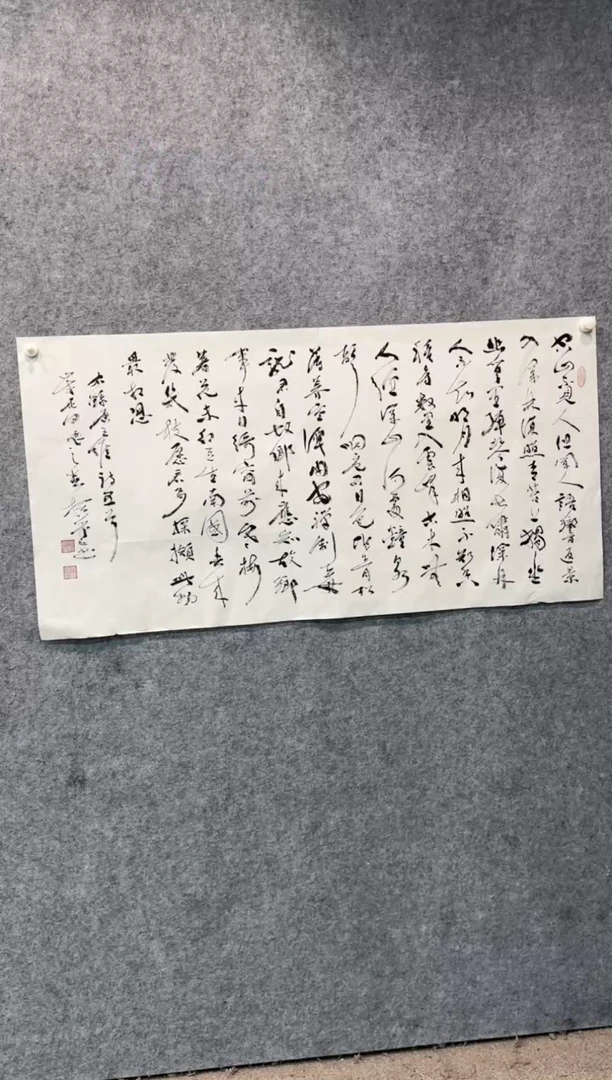 空山不見人但聞人語響返景
入深林復照青苔上獨坐
幽篁裏彈琴復長嘯深林
人不知明月來相照不知香
積寺數里入雲峰古木無
人徑深山何處鐘泉
聲咽危石日色冷青松
薄暮空潭曲安禪制毒
龍君自故鄉來應知故鄉
事來日綺窗前寒梅
著花未紅豆生南國春來
發幾枝願君多採擷此物
最相思
右錄唐王維詩